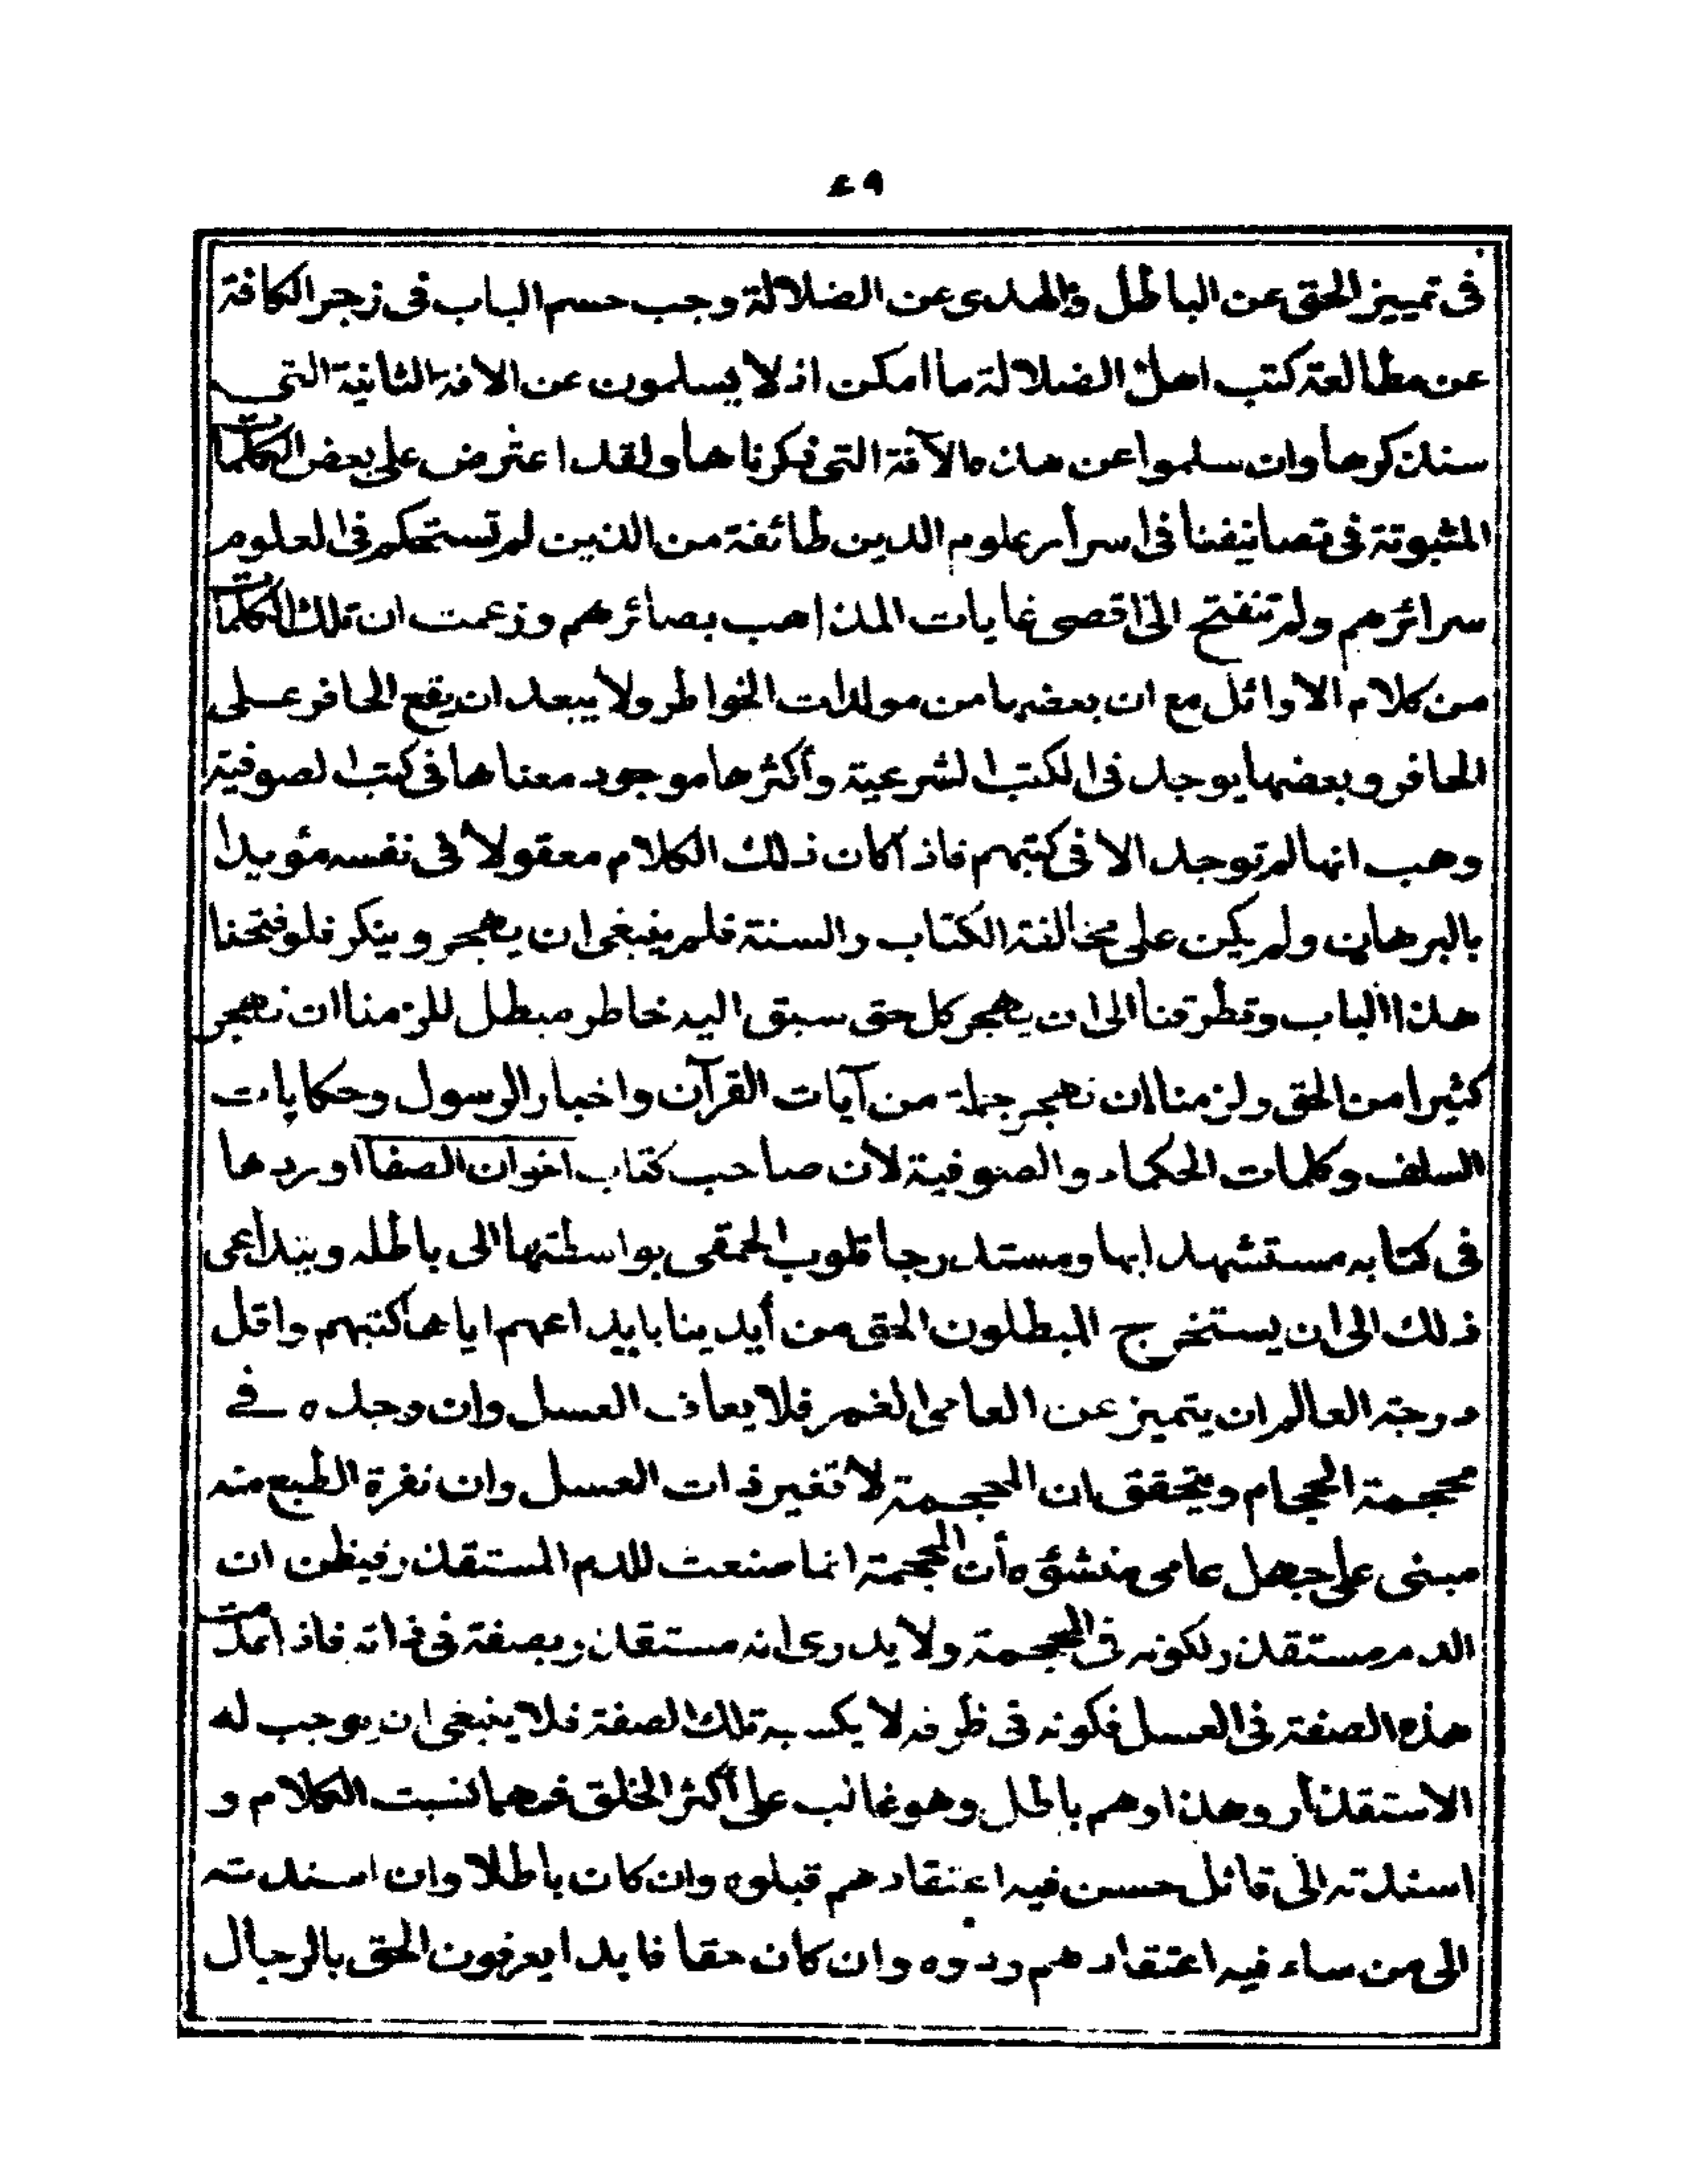 ٤٩
فى تمييز الحق عن الباطل والهدى عن الضلالة وجب حسم الباب فى زجر الكافة
عن مطالعة كتب اهل الضلالة ما امكن اذ لا يسلمون عن الافة الثانية التى
سنذكرها وان سلموا عن هذه الآفة التى ذكرناها ولقد اعترض على بعض الكلمات
المثبوتة فى تصانيفنا فى اسرار علوم الدين طائفة من الذين لم تستحكم فى العلوم
سرائرهم ولم تنفتح الى اقصى غايات المذاهب بصائرهم وزعمت ان تلك الكلمات
من كلام الأوائل مع ان بعضها من مولدات الخواطر ولا يبعد ان يقع الحافر على
الحافر وبعضها يوجد فى الكتب الشرعية وأكثرها موجود معناها فى كتب الصوفية
وهب انها لم توجد الا فى كتبهم فاذا كان ذلك الكلام معقولا فى نفسه مؤيدا
بالبرهان ولم يكن على مخالفة الكتاب والسنة فلم ينبغى ان يهجر وينكر فلو فتحنا
هذا الباب وتطرقنا الى ان يهجر كل حق سبق اليه خاطر مبطل للزمنا ان نهجر
كثيرا من الحق ولزمنا ان نهجر جملة من آيات القرآن واخبار الرسول وحكايات
السلف وكلمات الحكماء والصوفية لأن صاحب كتاب اخوان الصفا اوردها
فى كتابه مستشهدا بها ومستدرجا قلوب الحمقى بواسطتها الى باطله ويتداعى
ذلك الى ان يستخرج المبطلون الحق من أيدينا بايداعهم اياها كتبهم واقل
درجة العالم ان يتميز عن العامى الغمر فلا يعاف العسل وان وجده فى
محجمة الحجام ويتحقق ان المحجمة لا تغير ذات العسل وان نفرة الطبع منه
مبنى على جهل عامى منشؤه أن المحجمة انما صنعت للدم المستقذر فيظن ان
الدم مستقذر لكونه فى المحجمة ولا يدرى انه مستقذر بصفة فى ذاته فاذا عدمت
هذه الصفة فى العسل فكونه فى ظرفه لا يكسبه تلك الصفة فلا ينبغى ان يوجب له
الاستقذار وهذا وهم باطل وهو غالب على أكثر الخلق فمهما نسبت الكلام و
اسندته الى قائل حسن فيه اعتقادهم قبلوه وان كان باطلا وان اسندته
الى من ساء فيه اعتقادهم ردوه وان كان حقا فابدا يعرفون الحق بالرجال